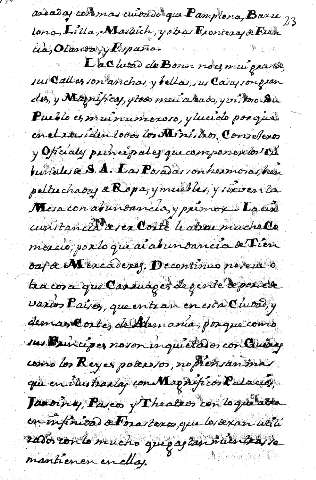 23
areadas con mas cuidado que Pamplona, Barce
lona, Lilla, Mastrich, y otras Fronteras de Fran
cia, Olanda, y España.
La Ciudad de Bonn no es mui grande
sus Calles son anchas, y bellas, sus Casas son gran
des, y Magnificas, y todo mui alado, y vistoso. Su
Pueblo es mui numeroso, y lucido porque
en el residen todos los Ministros, Consejeros
y Oficiales principales que componen los tri
bunales de S. A. Las Posadas son hermosas, bien
peltrechadas de Ropa, y muebles, y sirven la
Mesa con abundancia, y primor. La cir
cunstancia de ser Corte le atrae mucho Co
mercio, por lo que ai abundancia de Tien
das de Mercaderes. De continuo no se ve o
tra cosa que Carruages de gente de
varios Paises, que entran en esta Ciudad, y
demas Cortes de Alemania, porque como
sus Principes no son inquietados con Guerras
como los Reyes poderosos, no piensan mas
que en ilustrarlas con Magnificos Palacios,
Jardines, Paseos y Theatros con lo que atra
en infinidad de Forasteros, que los dexan utili
zados con lo mucho que gastan mientras se
mantienen en ellas.